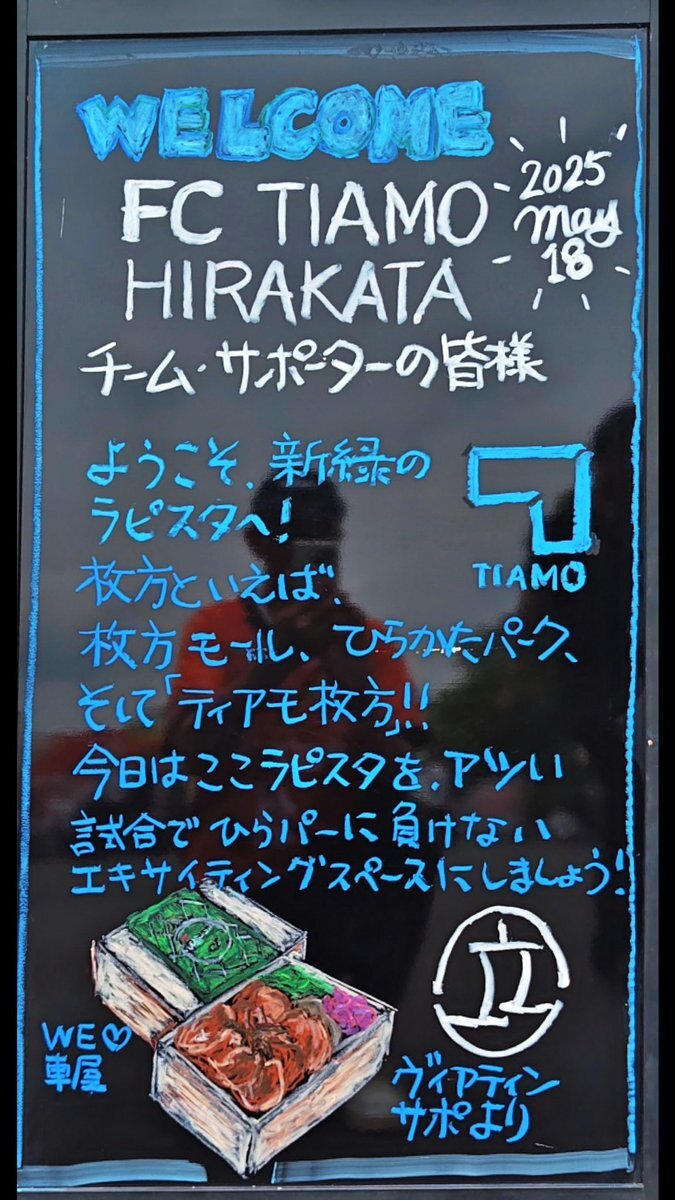 WELCOME
FC TIAMO
HIRAKATA
2025
may
18
チーム・サポーターの皆様
ようこそ、新緑の
ラピスタへ!
TIAMO
枚方といえば、
枚方モール、ひらかたパーク、
そして「ティアモ枚方」!!
今日はここラピスタを、アツい
試合でひらパーに負けない
エキサイティングスペースにしましょう!
WE♡
車屋
立
ヴィアティン
サポより